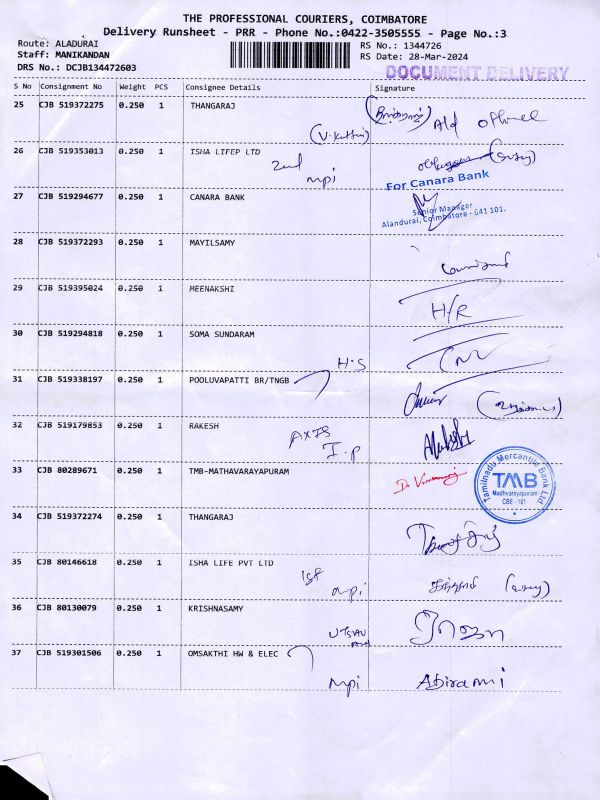 THE PROFESSIONAL COURIERS, COIMBATORE
Delivery Runsheet - PRR - Phone No.:0422-3505555 - Page No.:3
Route: ALADURAI
Staff: MANIKANDAN
DRS No.: DCJB134472603
RS No.: 1344726
RS Date: 28-Mar-2024
DOCUMENT DELIVERY
S No Consignment No Weight PCS Consignee Details Signature
25 CJB 519372275 0.250 1 THANGARAJ
26 CJB 519353013 0.250 1 ISHA LIFEP LTD
2nd
mpi
For Canara Bank
27 CJB 519294677 0.250 1 CANARA BANK
Senior Manager
Alandurai, Coimbatore - 641 101.
28 CJB 519372293 0.250 1 MAYILSAMY
29 CJB 519395024 0.250 1 MEENAKSHI
H/R
30 CJB 519294818 0.250 1 SOMA SUNDARAM
H.S
31 CJB 519338197 0.250 1 POOLUVAPATTI BR/TNGB
32 CJB 519179853 0.250 1 RAKESH
AXIS
I.P
33 CJB 80289671 0.250 1 TMB-MATHAVARAYAPURAM
Tamilnadu Mercantile Bank Ltd
TMB
Madhvarayapuram
CBE - 101
34 CJB 519372274 0.250 1 THANGARAJ
35 CJB 80146618 0.250 1 ISHA LIFE PVT LTD
1st
mpi
36 CJB 80130079 0.250 1 KRISHNASAMY
37 CJB 519301506 0.250 1 OMSAKTHI HW & ELEC
mpi
Abirami